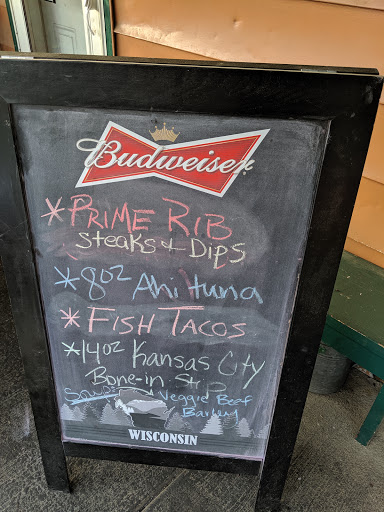 Budweiser
*PRIME RIB
Steaks & Dips
*8oz Ahi tuna
*FISH TACOS
*14oz Kansas City
Bone-in Strip
Soup Veggie Beef
Barley
WISCONSIN